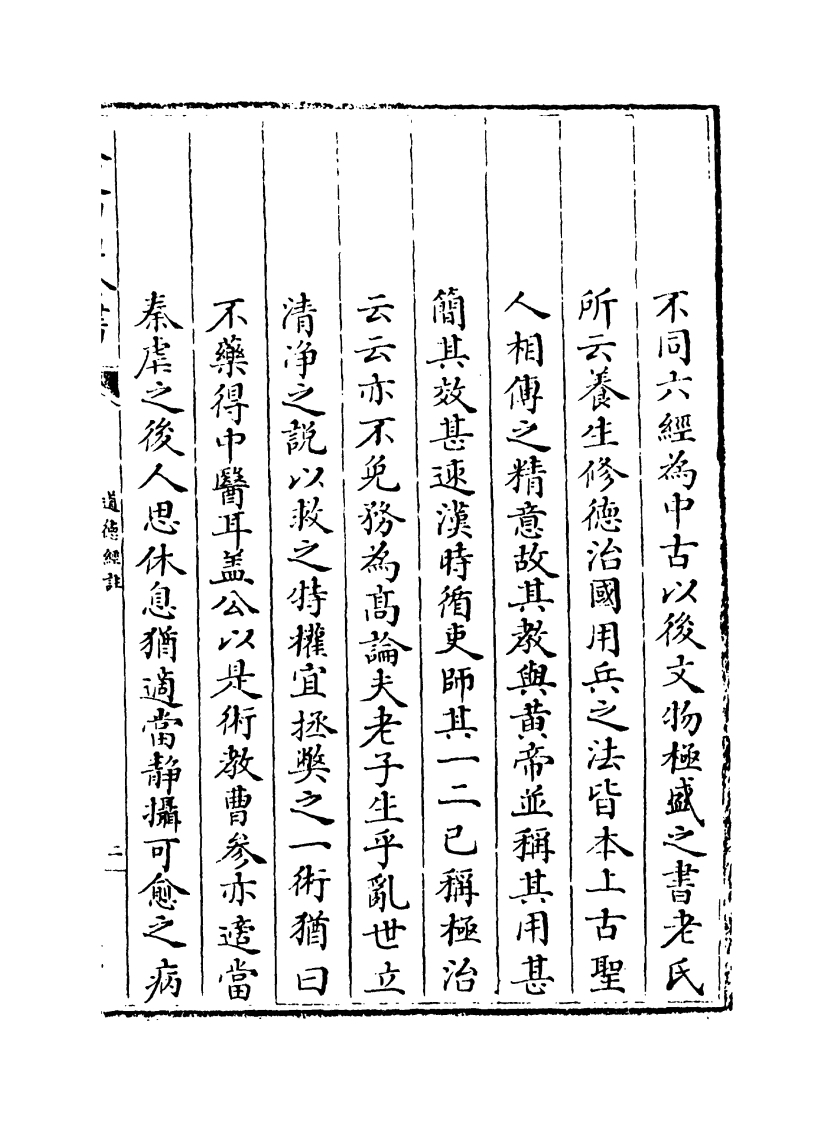 不同六經為中古以後文物極盛之書老氏
所云養生修德治國用兵之法皆本上古聖
人相傳之精意故其教與黄帝並稱其用甚
簡其效甚速漢時循吏師其一二已稱極治
云云亦不免務為髙論夫老子生乎亂世立
清浄之説以救之特權宜拯獘之一術猶曰
不藥得中醫耳盖公以是術教曹參亦適當
秦虐之後人思休息猶適當静攝可愈之病
道德經註
二